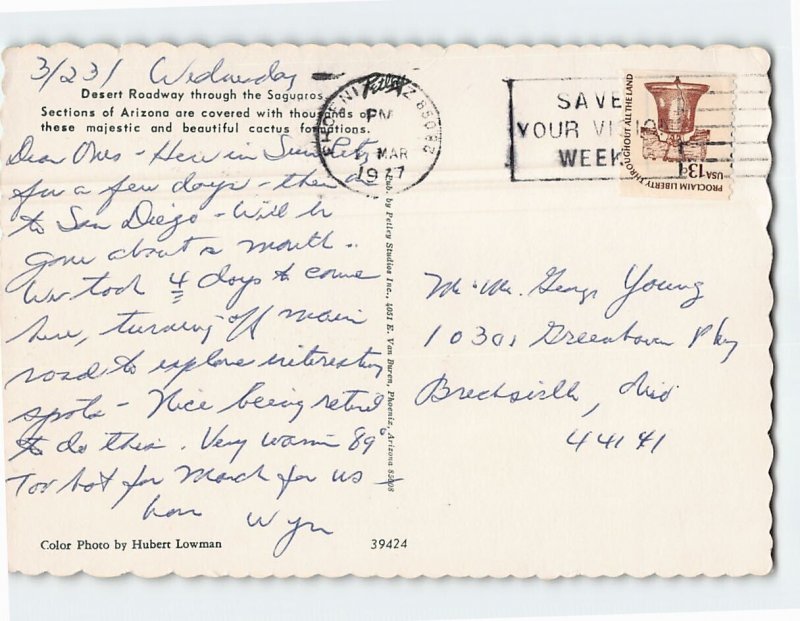 3/23/ Wednesday
Desert Roadway through the Saguaros
Sections of Arizona are covered with thousands of
these majestic and beautiful cactus formations.
Dear Ones - Here in Sun City
for a few days - then on
to San Diego - Will be
gone about a month..
We took 4 days to come
here, turning off main
road to explore interesting
spots - Nice being retired
to do this. Very warm 89°
Too hot for March for us -
Wyn
Color Photo by Hubert Lowman
39424
Pub. by Petley Studios Inc., 4051 E. Van Buren, Phoenix, Arizona 85008
PHOENIX AZ 85082
PM
MAR
1977
SAVE
YOUR VISION
WEEK
PROCLAIM LIBERTY THROUGHOUT ALL THE LAND
USA 13c
Mr &amp; Mrs. George Young
10301 Greenhaven Pkwy
Brecksville, Ohio
44141